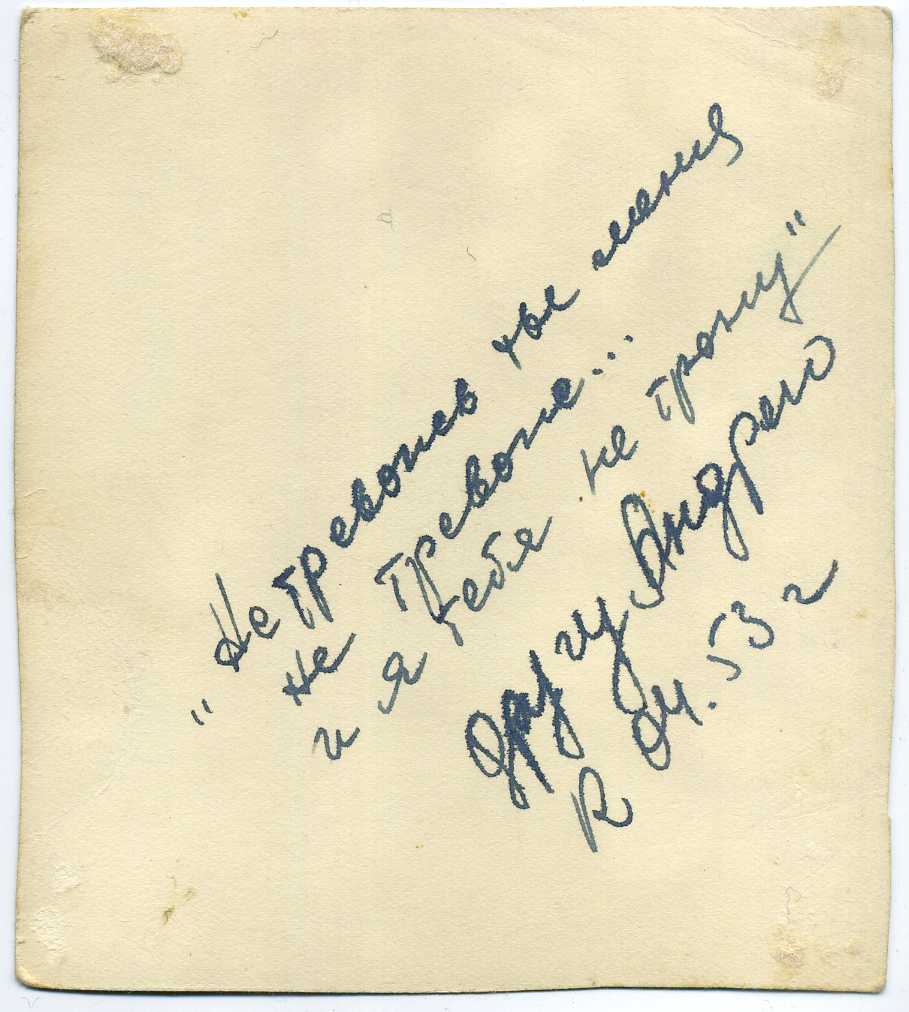 "Не тревожь ты меня
не тревожь...
и я тебя не трону"
другу Андрею
R 04.53 г